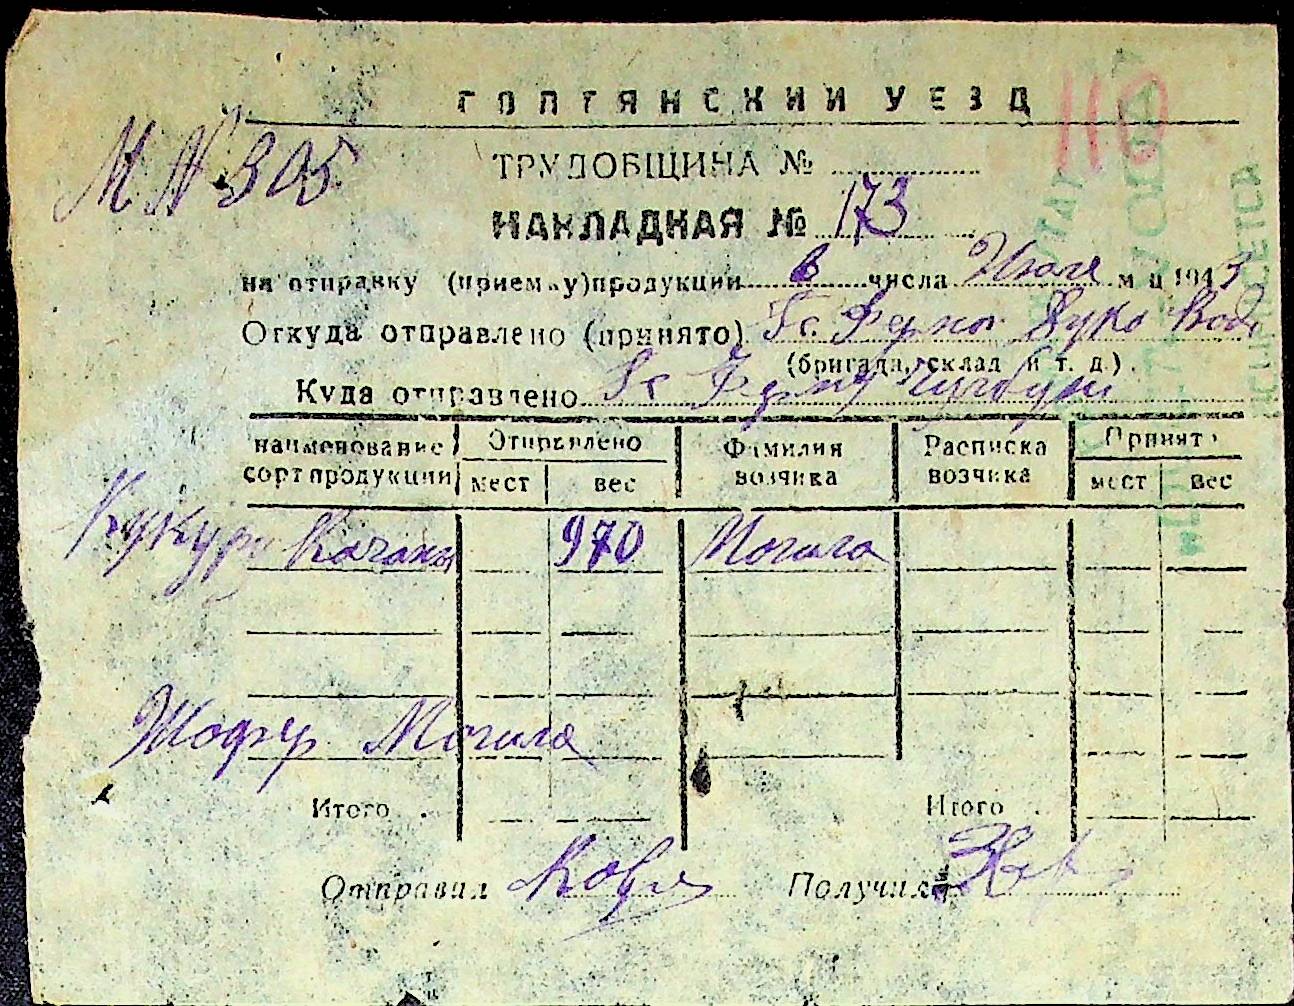 ГОЛТЯНСКИЙ УЕЗД
110
М № 305
ТРУДОБЩИНА №
НАКЛАДНАЯ № 173
на отправку (приемку) продукции 6 числа Июля м-ц 1943
Откуда отправлено (принято) Гс. Ферма Дуко Вод
(бригада, склад и т. д.).
Куда отправлено Гс Ферму
наименование сорт продукции Отправлено мест вес Фамилия возчика Расписка возчика Принято мест вес
Кукуру Качаны 970 Могила
Шофер Могила
Итого Итого
Отправил Получил